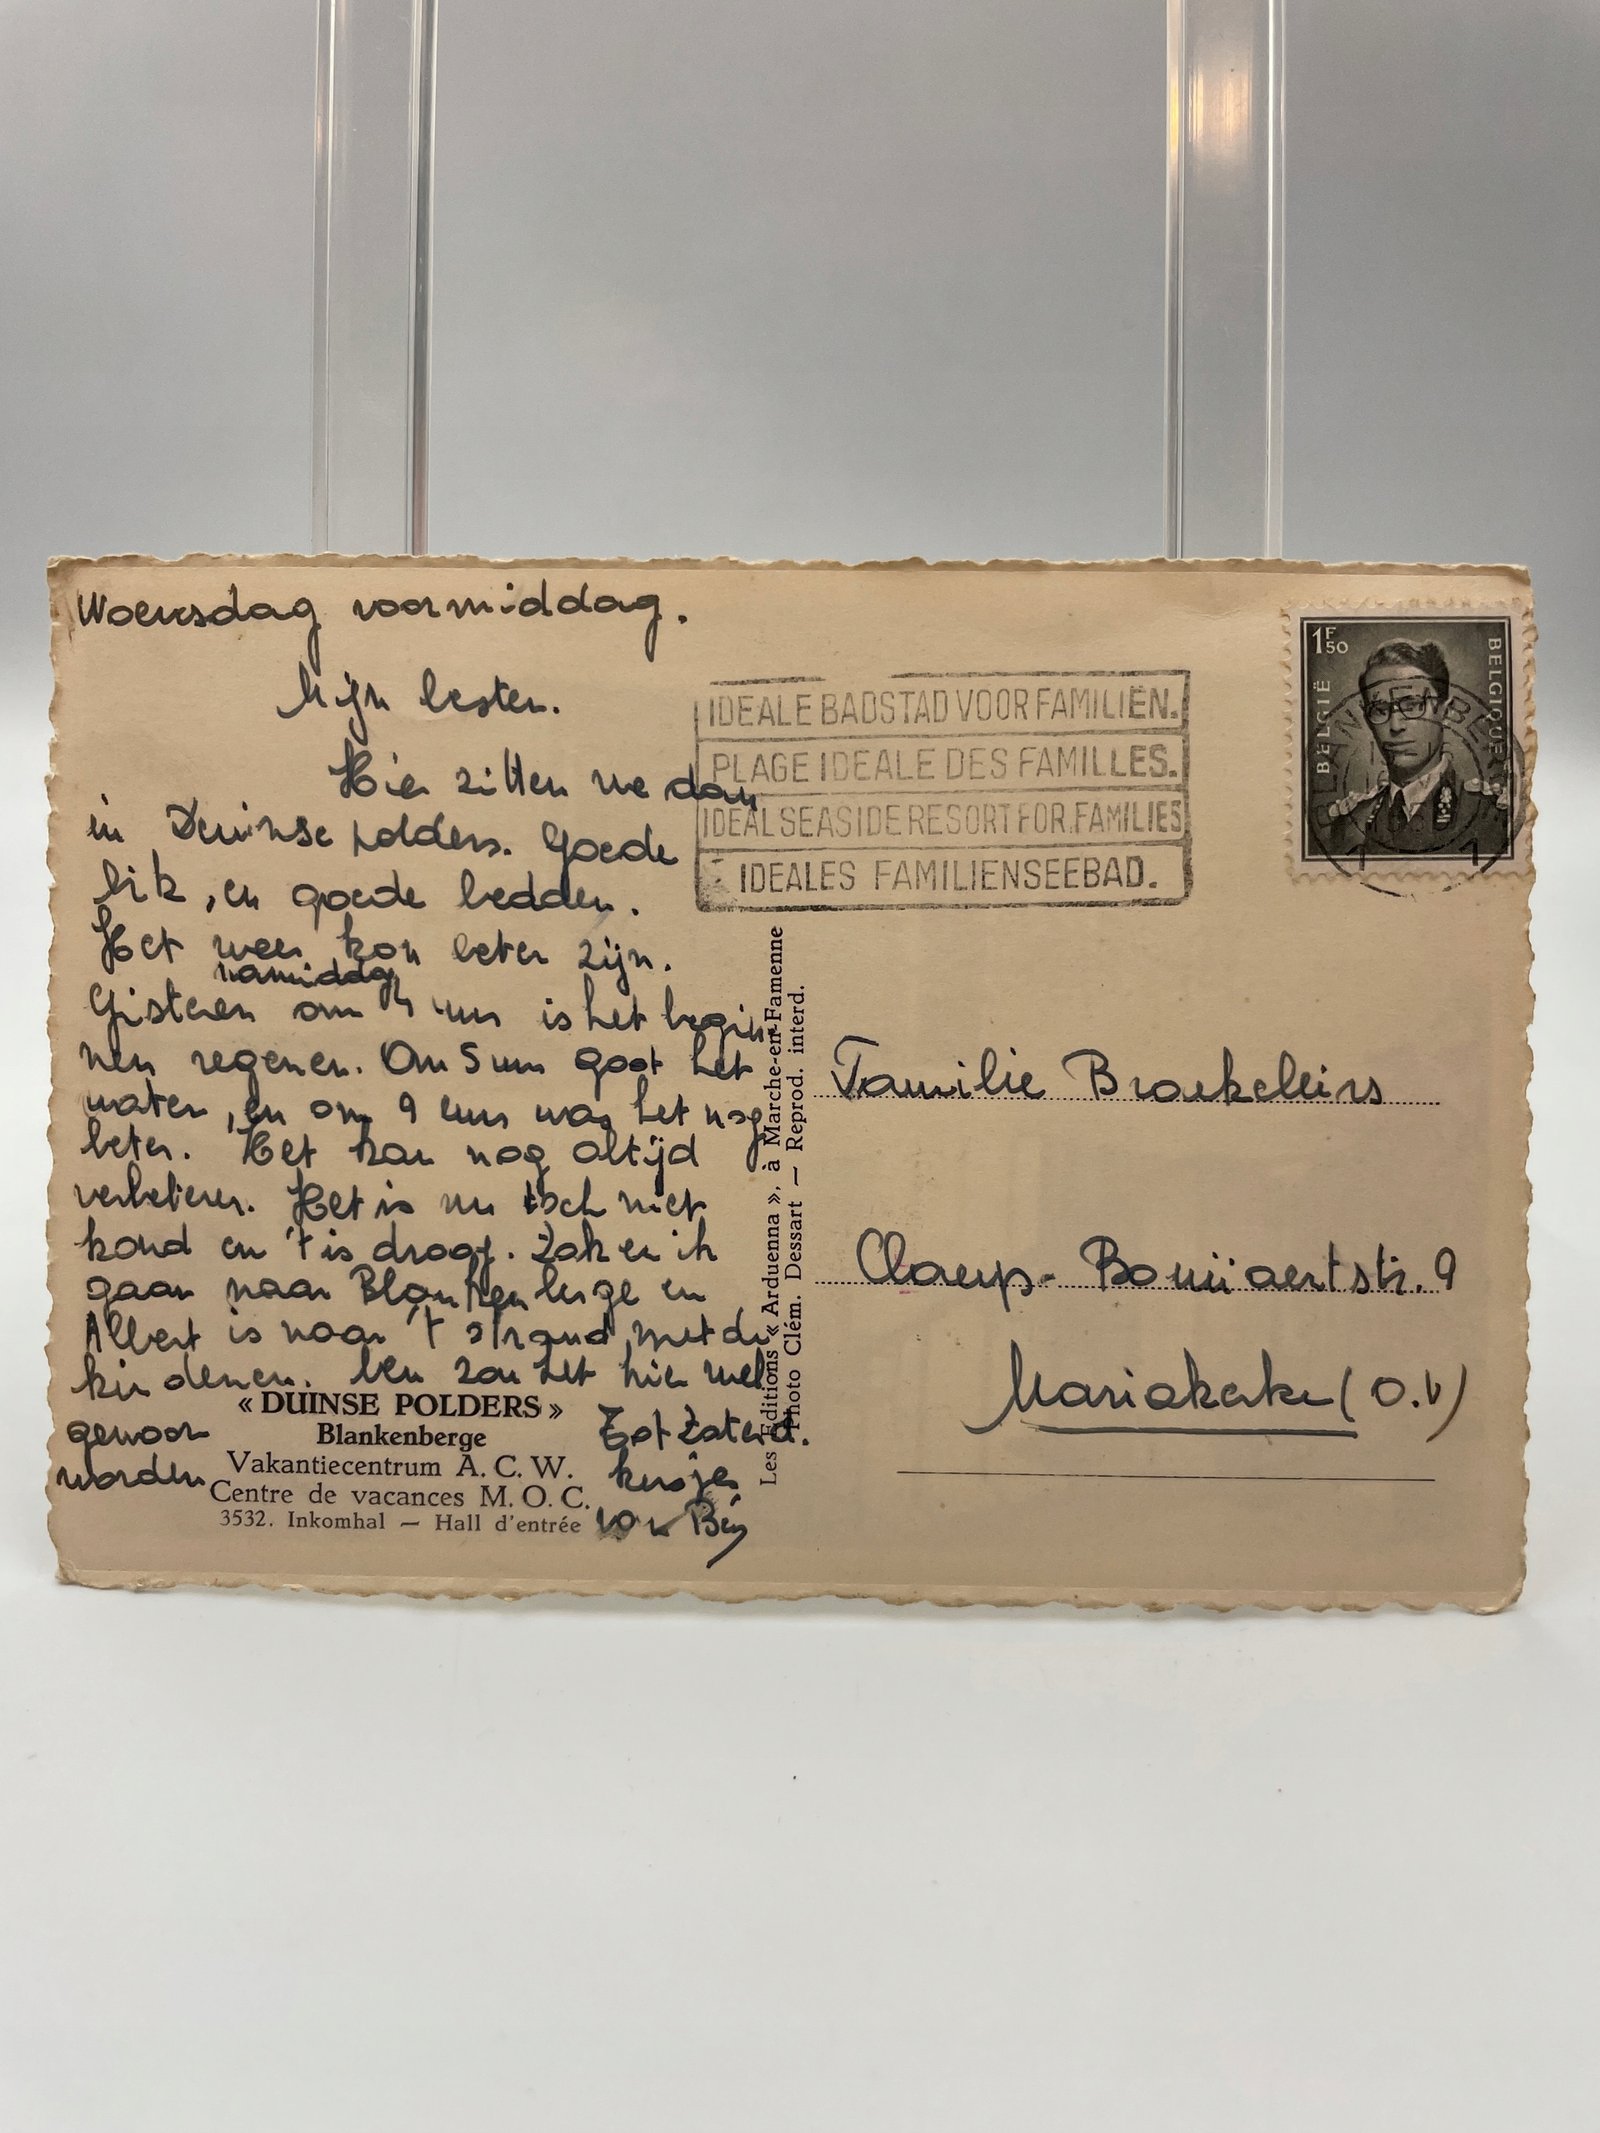 Woensdag voormiddag.
Mijn besten.
Hier zitten we dan
in Duinse polders. Goede
bik, en goede bedden.
Het weer kon beter zijn.
namiddag
Gisteren om 4 uur is het begin
nen regenen. Om 5 uur goot het
water, en om 9 uur was het nog
beter. Het kan nog altijd
verbeteren. Het is nu toch niet
koud en 't is droog. Zak en ik
gaan naar Blankenberge en
Albert is naar 't strand met de
kinderen. Men zou het hier wel
gewoon
worden
Tot Zaterd.
kusjes
van
« DUINSE POLDERS »
Blankenberge
Vakantiecentrum A. C. W.
Centre de vacances M. O. C.
3532. Inkomhal — Hall d'entrée
Les Editions « Arduenna », à Marche-en-Famenne
Photo Clém. Dessart — Reprod. interd.
IDEALE BADSTAD VOOR FAMILIËN.
PLAGE IDEALE DES FAMILLES.
IDEAL SEASIDE RESORT FOR FAMILIES
IDEALES FAMILIENSEEBAD.
1F50
BELGIË
BELGIQUE
BLANKENBERGE
Familie Braekeleirs
Claeys-Bouüaertstr. 9
Mariakerke (O.V)